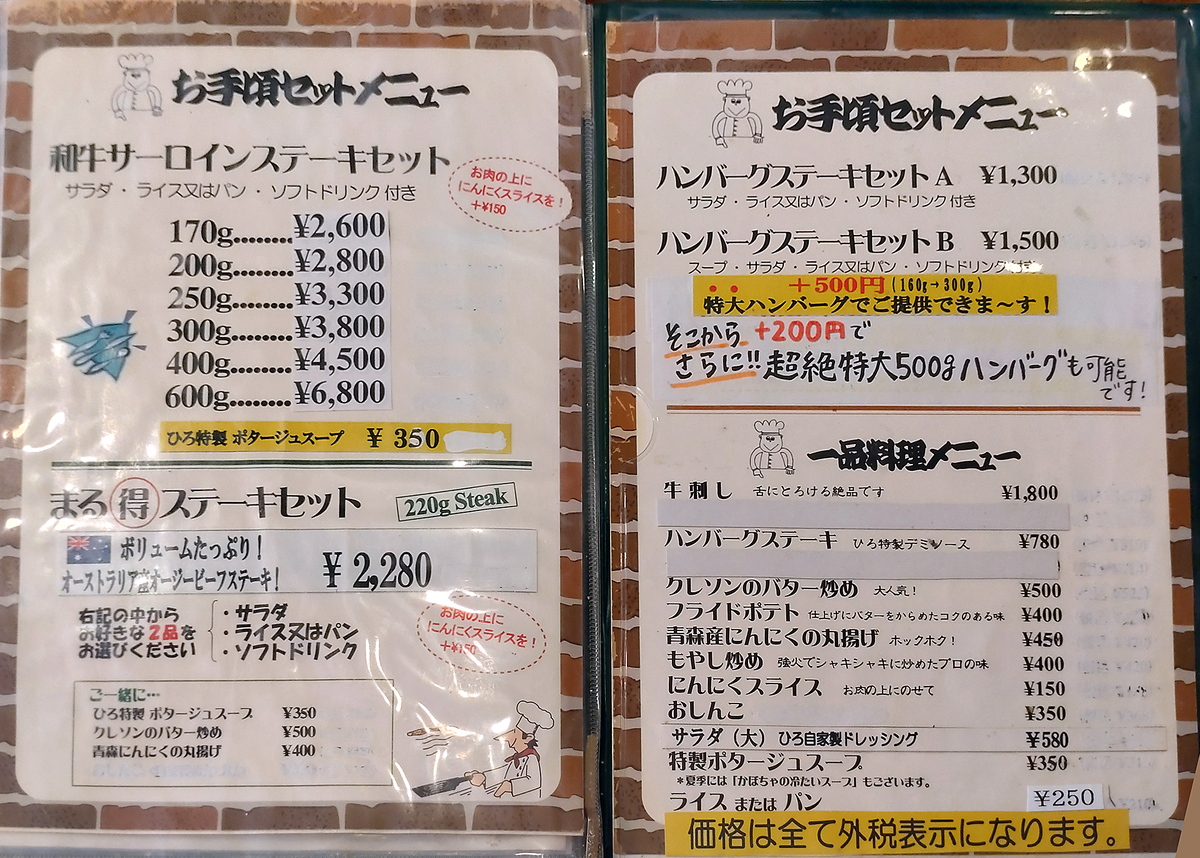 お手頃セットメニュー
和牛サーロインステーキセット
サラダ・ライス又はパン・ソフトドリンク付き
お肉の上に
にんにくスライスを！
+¥150
170g.........¥2,600
200g.........¥2,800
250g.........¥3,300
300g.........¥3,800
400g.........¥4,500
600g.........¥6,800
ひろ特製 ポタージュスープ ¥ 350
まる得ステーキセット
220g Steak
ボリュームたっぷり！
オーストラリア産オージービーフステーキ！
¥ 2,280
右記の中から
お好きな2品を
お選びください
・サラダ
・ライス又はパン
・ソフトドリンク
お肉の上に
にんにくスライスを！
+¥150
ご一緒に…
ひろ特製 ポタージュスープ ¥350
クレソンのバター炒め ¥500
青森にんにくの丸揚げ ¥400
お手頃セットメニュー
ハンバーグステーキセット A ¥1,300
サラダ・ライス又はパン・ソフトドリンク付き
ハンバーグステーキセット B ¥1,500
スープ・サラダ・ライス又はパン・ソフトドリンク付き
＋500円(160g→300g)
特大ハンバーグでご提供できま〜す！
そこから +200円で
さらに!! 超絶特大500gハンバーグも可能
です!
一品料理メニュー
牛刺し 舌にとろける絶品です ¥1,800
ハンバーグステーキ ひろ特製デミソース ¥780
クレソンのバター炒め 大人気！ ¥500
フライドポテト 仕上げにバターをからめたコクのある味 ¥400
青森産にんにくの丸揚げ ホックホク！ ¥450
もやし炒め 強火でシャキシャキに炒めたプロの味 ¥400
にんにくスライス お肉の上にのせて ¥150
おしんこ ¥350
サラダ（大）ひろ自家製ドレッシング ¥580
特製ポタージュスープ ¥350
＊夏季には「かぼちゃの冷たいスープ」もございます。
ライス または パン ¥250
価格は全て外税表示になります。